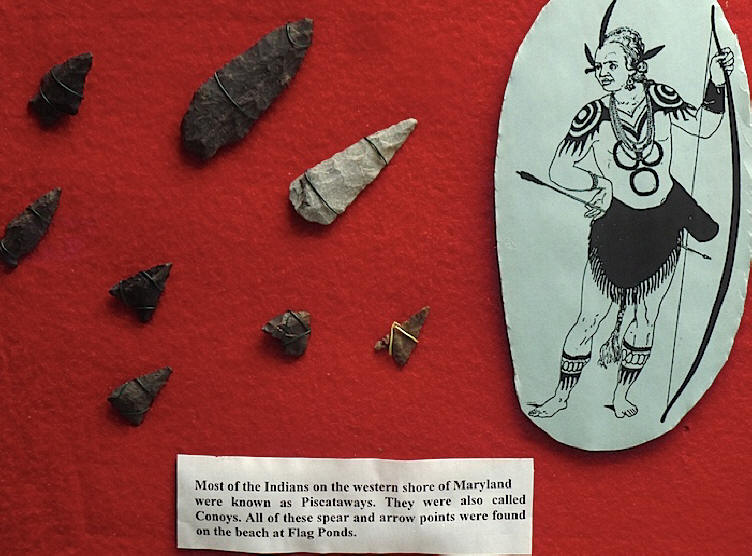 Most of the Indians on the western shore of Maryland
were known as Piscataways. They were also called
Conoys. All of these spear and arrow points were found
on the beach at Flag Ponds.